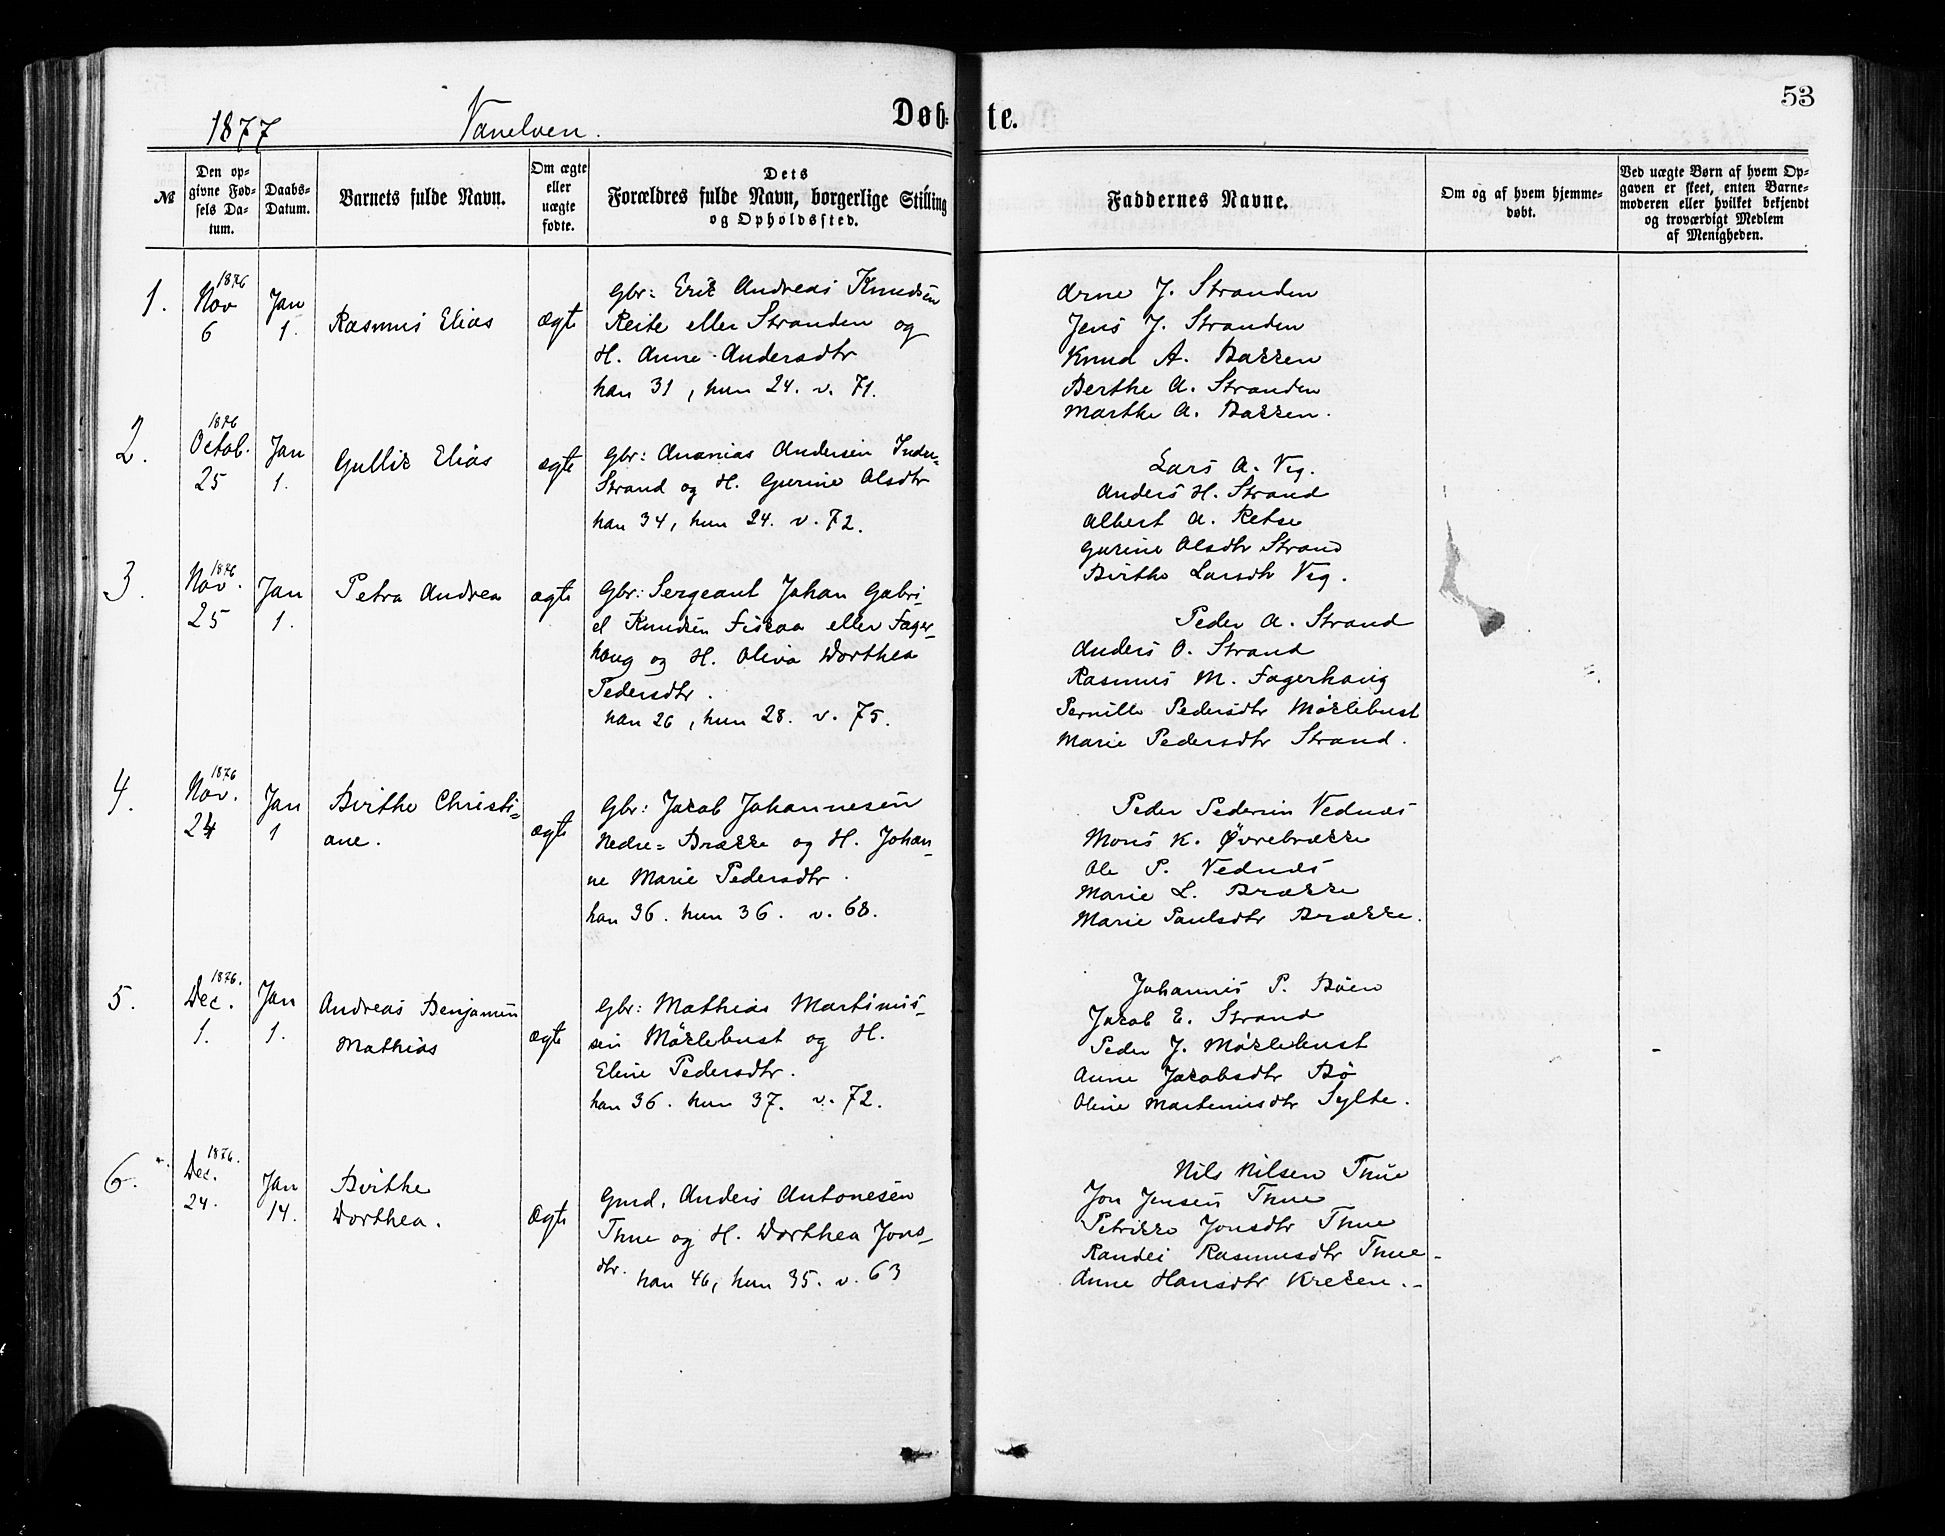 53
1877 Vanelven. Døb- te.
№
Den op-
givne Fød-
sels Da-
tum.
Daabs-
Datum.
Barnets fulde Navn.
Om ægte
eller
uægte
fødte.
Dets
Forældres fulde Navn, borgerlige Stilling
og Opholdssted.
Faddernes Navne.
Om og af hvem hjemme-
døbt.
Ved uægte Børn af hvem Op-
gaven er skeet, enten Barne-
moderen eller hvilket bekjendt
og troværdigt Medlem
af Menigheden.
1.
1876
Nov
6
Jan
1.
Rasmus Elias
ægte
Gbr: Erik Andreas Knudsen
Reite eller Stranden og
H. Anne Andersdtr
han 31, hun 24. v. 71.
Arne J. Stranden
Jens J. Stranden
Knud A. Bakken
Berthe A. Stranden
Marthe A. Bakken.
2.
1876
Octob.
25
Jan
1.
Gullik Elias
ægte
Gbr: Ananias Andersen Inder-
Strand og H. Gurine Olsdtr
han 34, hun 24. v. 72.
Lars A. Vig.
Anders H. Strand
Albert A. Retse
Gurine Olsdtr Strand
Birthe Larsdtr Vig.
3.
1876
Nov.
25
Jan
1.
Petra Andrea
ægte
Gbr: Sergeant Johan Gabri-
el Knudsen Fiskaa eller Fager-
haug og H. Oliva Dorthea
Pedersdtr.
han 26, hun 28. v. 75.
Peder A. Strand
Anders O. Strand
Rasmus M. Fagerhaug
Pernille Pedersdtr Mørkebust
Marie Pedersdtr Strand.
4.
1876
Nov.
24
Jan
1
Birthe Christi-
ane.
ægte
Gbr: Jakob Johannesen
Nedre-Brække og H. Johan-
ne Marie Pedersdtr.
han 36. hun 36. v. 68.
Peder Pedersen Vednæs
Mons K. Øvrebrække
Ole P. Vednæs
Marie L. Brække
Marie Paulsdtr Brække.
5.
1876.
Dec.
1.
Jan
1.
Andreas Benjamin
Mathias
ægte
Gbr: Mathias Martinus-
sen Mørkebust og H.
Eline Pedersdtr.
han 36. hun 37. v. 72.
Johannes P. Bøen
Jakob E. Strand
Peder J. Mørkebust
Anne Jakobsdtr Bø
Oline Martinusdtr Sylte.
6.
1876.
Dec.
24.
Jan
14.
Birthe
Dorthea.
Ægte
Gmd. Anders Antonesen
Thue og H. Dorthea Jons-
dtr. han 46, hun 35. v. 63
Nils Nilsen Thue
Jon Jensen Thue
Petrikke Jonsdtr Thue
Randei Rasmusdtr Thue
Anne Hansdtr Kreken.